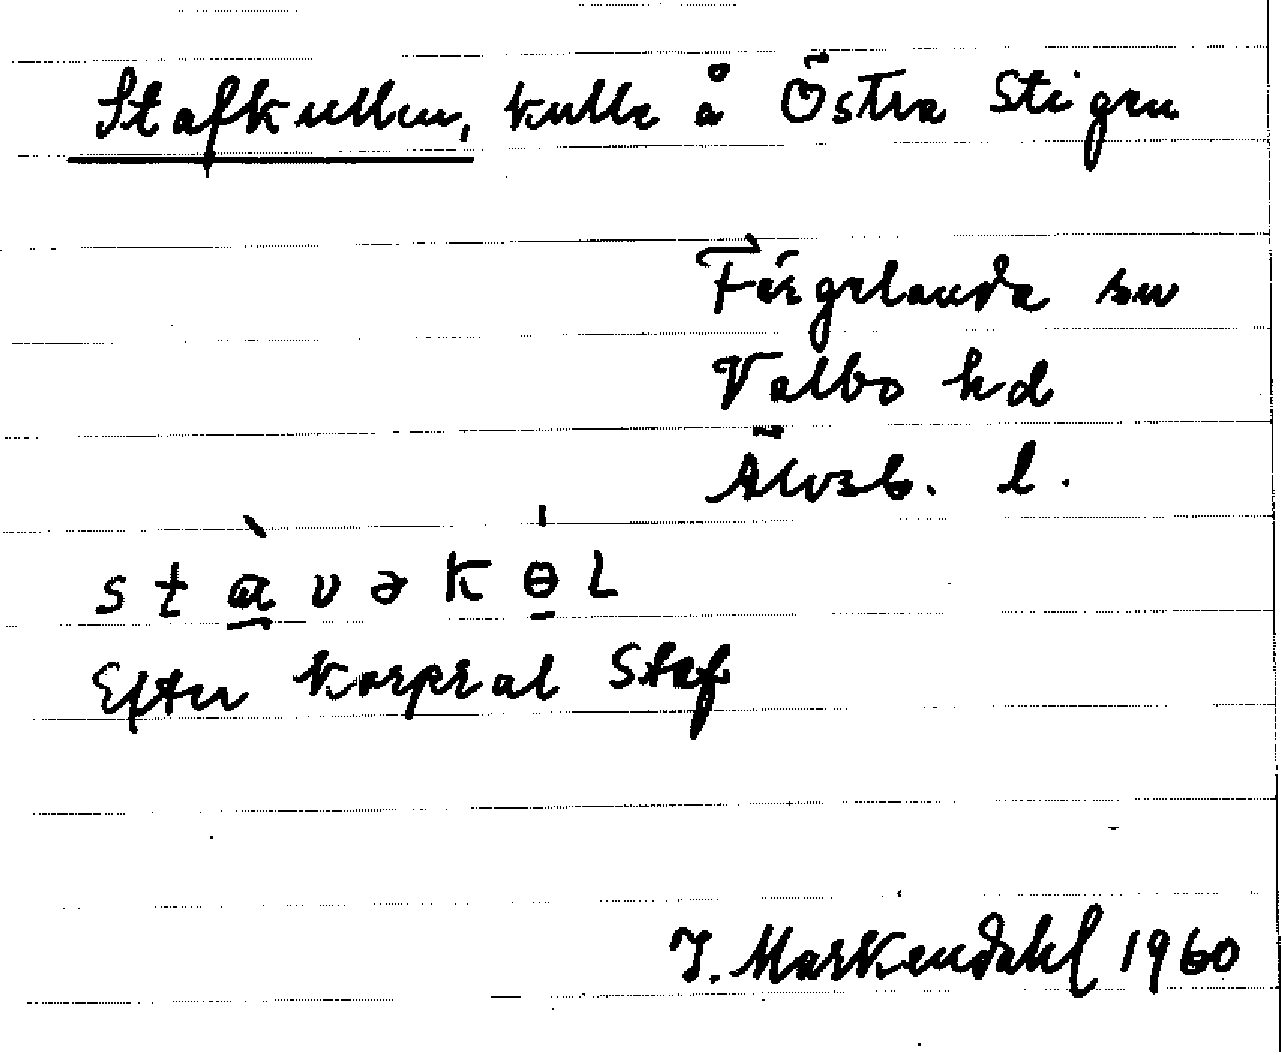 Stafkullen, kulle å Östra Stigen
Färgelanda sn
Valbo hd
Älvsb. l.
stàvəkɵ́L
Efter korpral Staf
I. Markendahl 1960